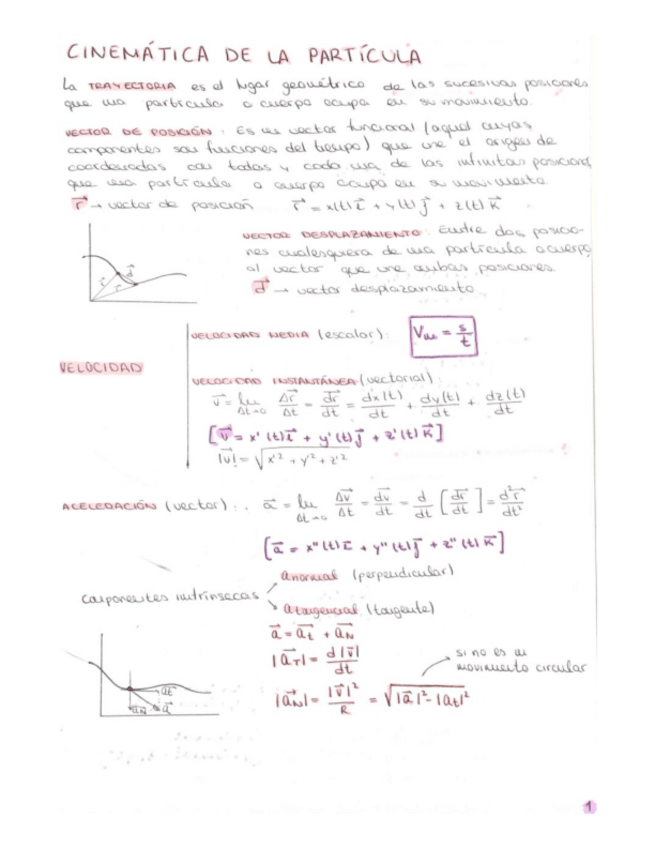 CINEMÁTICA DE LA PARTÍCULA
La TRAYECTORIA es el lugar geométrico de las sucesivas posiciones
que una partícula o cuerpo ocupa en su movimiento.
VECTOR DE POSICIÓN: Es un vector funcional (aquel cuyas
componentes son funciones del tiempo) que une el origen de
coordenadas con todas y cada una de las infinitas posiciones
que una partícula o cuerpo ocupa en su movimiento
r⃗ → vector de posición r⃗ = x(t)i⃗ + y(t)j⃗ + z(t)k⃗
VECTOR DESPLAZAMIENTO: Entre dos posicio-
nes cualesquiera de una partícula o cuerpo,
al vector que une ambas posiciones.
d⃗ → vector desplazamiento
d⃗
r⃗ r⃗
VELOCIDAD MEDIA (escalar): Vm = s/t
VELOCIDAD
VELOCIDAD INSTANTÁNEA (vectorial):
v⃗ = lim Δt→0 Δr⃗/Δt = dr⃗/dt = dx(t)/dt + dy(t)/dt + dz(t)/dt
[v⃗ = x'(t)i⃗ + y'(t)j⃗ + z'(t)k⃗]
|v⃗| = √x'² + y'² + z'²
ACELERACIÓN (vector): a⃗ = lim Δt→0 Δv⃗/Δt = dv⃗/dt = d/dt [dr⃗/dt] = d²r⃗/dt²
[a⃗ = x''(t)i⃗ + y''(t)j⃗ + z''(t)k⃗]
anormal (perpendicular)
Componentes intrínsecas
atangencial (tangente)
a⃗ = a⃗t + a⃗N
|a⃗T| = d|v⃗|/dt
si no es un
movimiento circular
|a⃗N| = |v⃗|²/R = √|a⃗|² - |at|²
at
aN a⃗
1